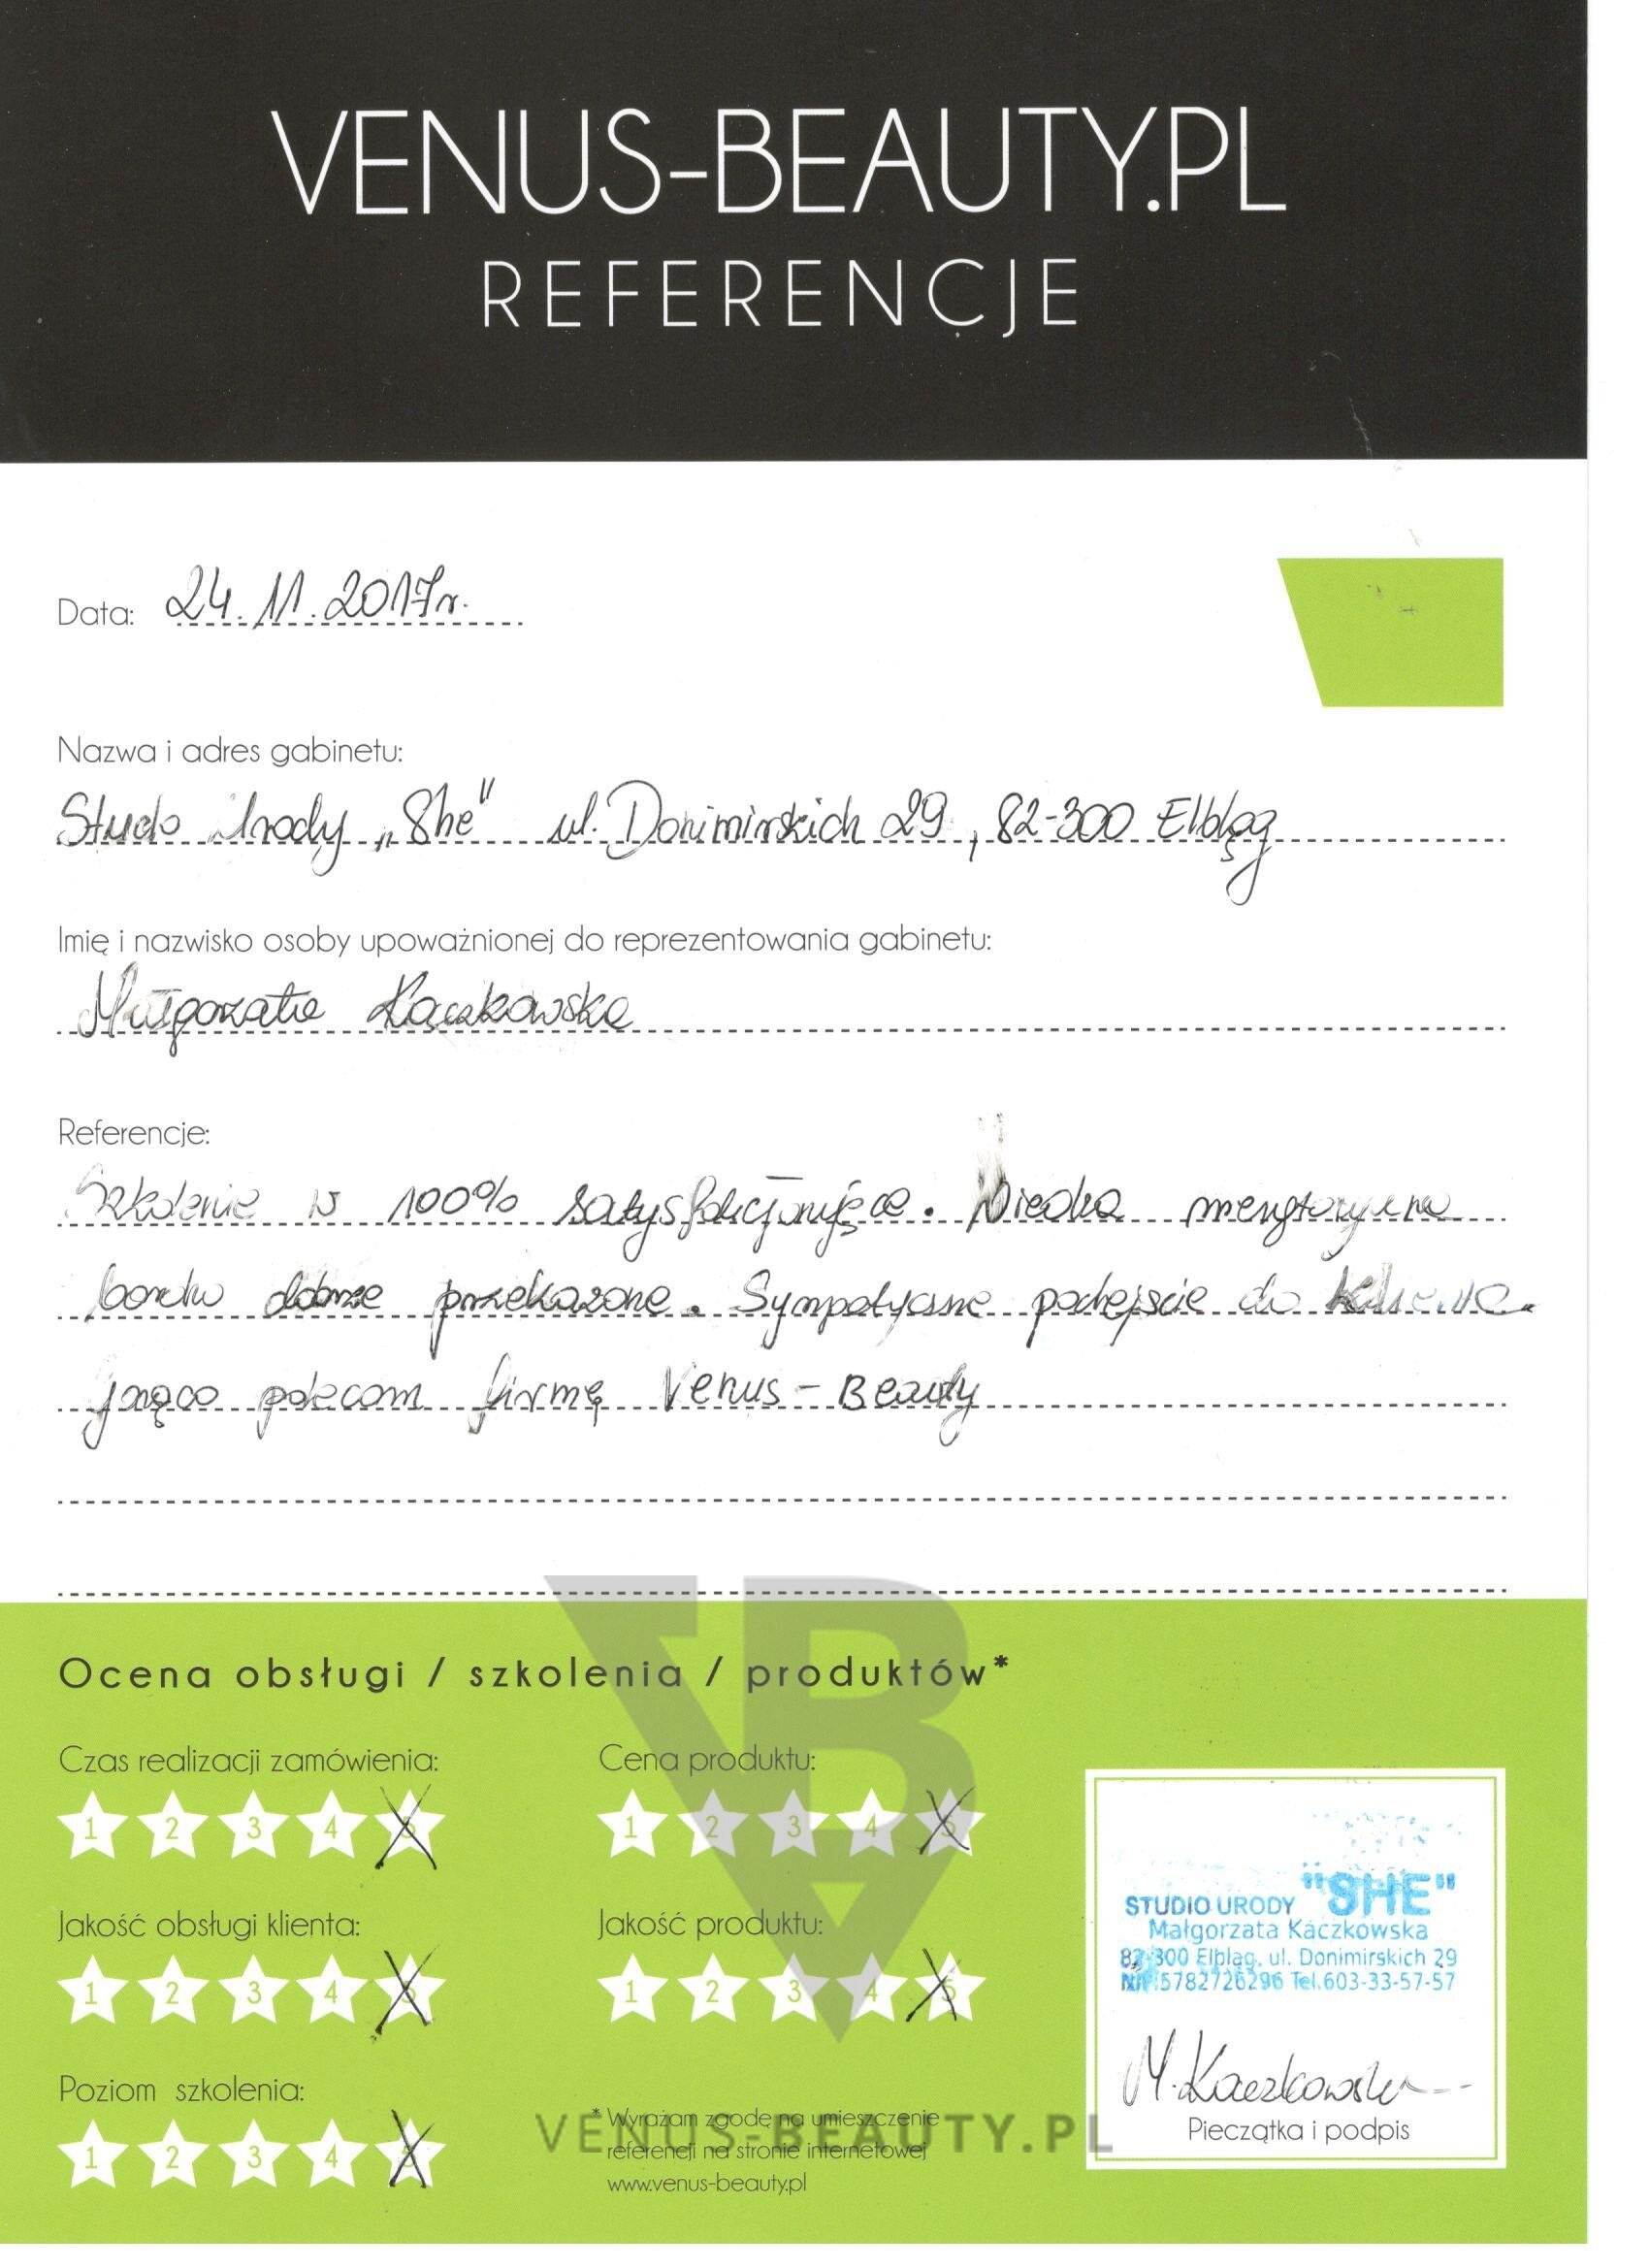 VENUS-BEAUTY.PL
REFERENCJE
Data: 24.11.2017r.
Nazwa i adres gabinetu:
Studio Urody „She" ul. Donimirskich 29, 82-300 Elbląg
Imię i nazwisko osoby upoważnionej do reprezentowania gabinetu:
Małgorzata Kaczkowska
Referencje:
Szkolenie w 100% satysfakcjonujące. Wiedza merytoryczna
bardzo dobrze przekazane. Sympatyczne podejście do klienta.
Gorąco polecam firmę Venus-Beauty
Ocena obsługi / szkolenia / produktów*
Czas realizacji zamówienia:
1 2 3 4 5
Cena produktu:
1 2 3 4 5
Jakość obsługi klienta:
1 2 3 4 5
Jakość produktu:
1 2 3 4 5
Poziom szkolenia:
1 2 3 4 5
* Wyrażam zgodę na umieszczenie
referencji na stronie internetowej
www.venus-beauty.pl
VENUS-BEAUTY.PL
STUDIO URODY "SHE"
Małgorzata Kaczkowska
82-300 Elbląg, ul. Donimirskich 29
NIP:5782726296 Tel.603-33-57-57
M. Kaczkowska
Pieczątka i podpis